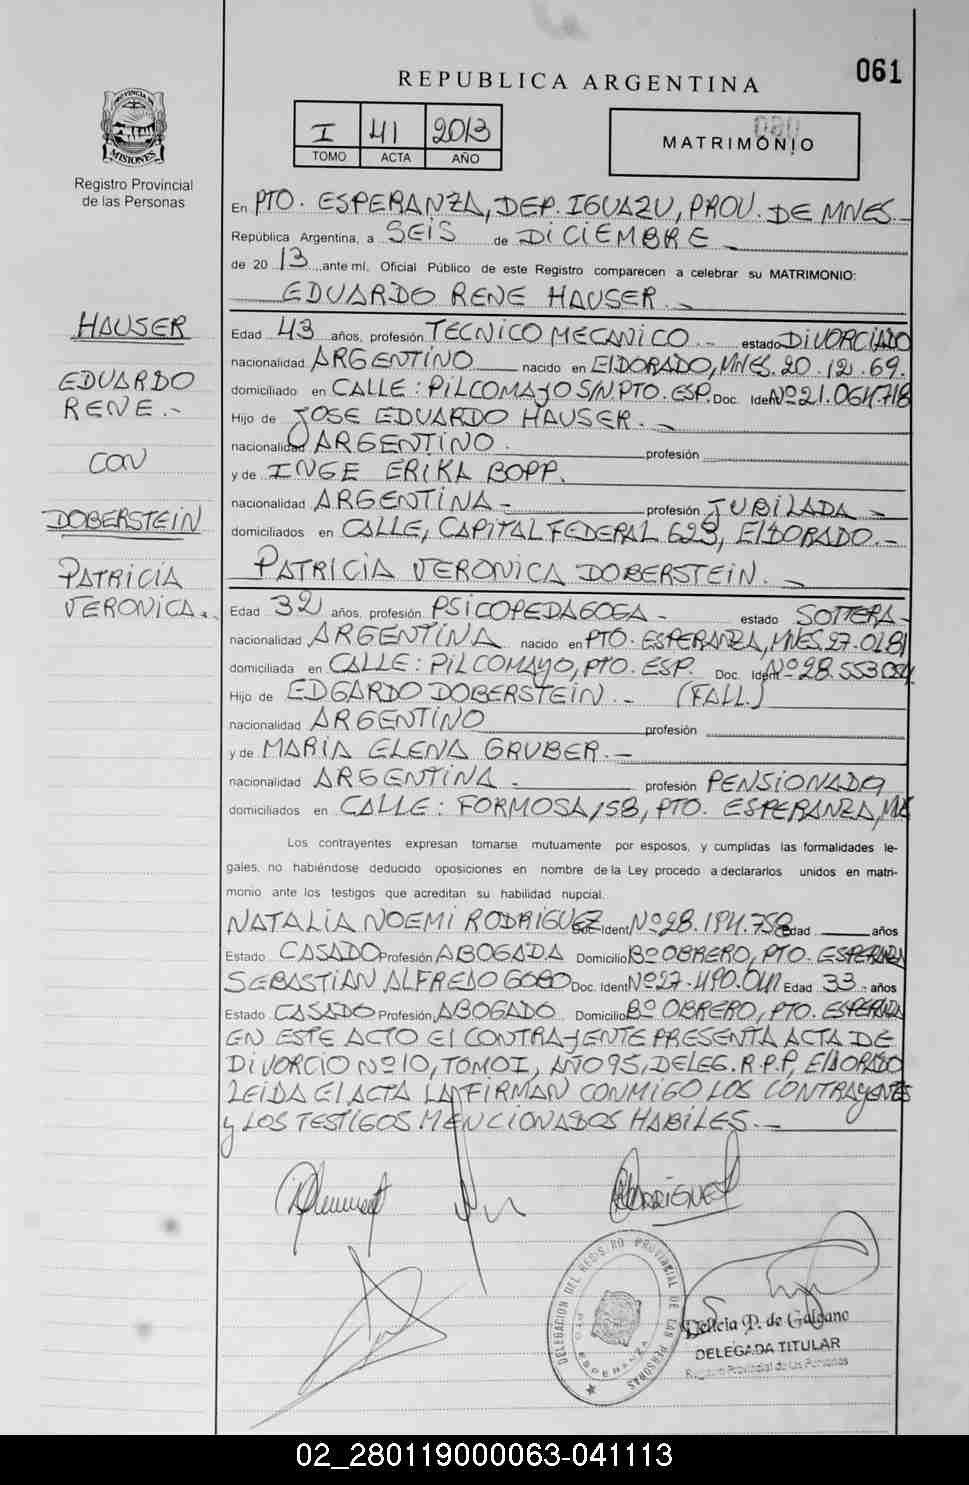 061
REPUBLICA ARGENTINA
I 41 2013
TOMO ACTA AÑO
MATRIMONIO
PROVINCIA DE
MISIONES
Registro Provincial
de las Personas
En PTO. ESPERANZA, DEP. IGUAZU, PROV. DE MNES.-
República Argentina, a SEIS de DICIEMBRE -
de 2013 ante mí, Oficial Público de este Registro comparecen a celebrar su MATRIMONIO:
EDUARDO RENE HAUSER.-
HAUSER
EDUARDO
RENE.-
CON
DOBERSTEIN
PATRICIA
VERONICA.
Edad 43 años, profesión TECNICO MECANICO.- estado DIVORCIADO
nacionalidad ARGENTINO nacido en ElDORADO, MNES. 20.12.69.
domiciliado en CALLE: PILCOMAYO S/N PTO. ESP. Doc. Ident Nº 21.064.718
Hijo de JOSE EDUARDO HAUSER.-
nacionalidad ARGENTINO. profesión
y de INGE ERIKA BOPP.
nacionalidad ARGENTINA- profesión JUBILADA -
domiciliados en CALLE, CAPITAL FEDERAL 629, ElDORADO.-
PATRICIA VERONICA DOBERSTEIN.-
Edad 32 años, profesión PSICOPEDAGOGA- estado SOLTERA-
nacionalidad ARGENTINA nacido en PTO. ESPERANZA, MNES. 27-01-81
domiciliada en CALLE: PILCOMAYO, PTO. ESP. Doc. Ident Nº 28.553.054
Hijo de EDGARDO DOBERSTEIN.- (FALL.)
nacionalidad ARGENTINO profesión
y de MARIA ELENA GRUBER.-
nacionalidad ARGENTINA- profesión PENSIONADA
domiciliados en CALLE: FORMOSA 158, PTO. ESPERANZA,
Los contrayentes expresan tomarse mutuamente por esposos, y cumplidas las formalidades le-
gales, no habiéndose deducido oposiciones en nombre de la Ley procedo a declararlos unidos en matri-
monio ante los testigos que acreditan su habilidad nupcial.
NATALIA NOEMI RODRIGUEZ Doc. Ident Nº 28.194.758 Edad años
Estado CASADO Profesión ABOGADA Domicilio Bº OBRERO, PTO. ESPERANZA
SEBASTIAN ALFREDO GOBO Doc. Ident Nº 27.490.041 Edad 33.- años
Estado CASADO Profesión ABOGADO Domicilio Bº OBRERO, PTO. ESPERANZA
EN ESTE ACTO El CONTRAYENTE PRESENTA ACTA DE
DIVORCIO Nº 10, TOMO I, AÑO 95, DELEG. R.P.P, ElDORADO
LEIDA El ACTA LA FIRMAN CONMIGO LOS CONTRAYENTES
y LOS TESTIGOS MENCIONADOS HABILES.-
RODRIGUEZ
DELEGACION DEL REGISTRO PROVINCIAL DE LAS PERSONAS
PTO ESPERANZA
Delicia P. de Galeano
DELEGADA TITULAR
Registro Provincial de las Personas
02_280119000063-041113